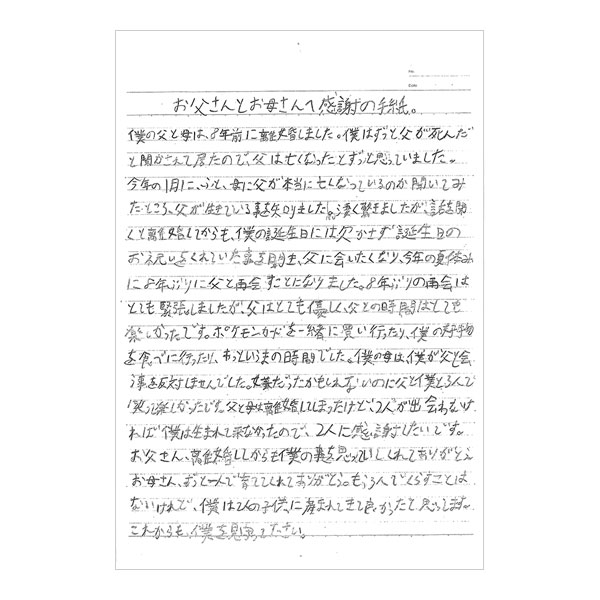 No.
Date
お父さんとお母さんへ感謝の手紙。
僕の父と母は、8年前に離婚しました。僕はずっと父が死んだ
と聞かされて居たので、父は亡くなったとずっと思っていました。
今年の1月に、ふと、母に父が本当に亡くなっているのか聞いてみ
たところ、父が生きている事を知りました。凄く驚きましたが、話を聞
くと離婚してからも、僕の誕生日には欠かさず誕生日の
お祝いをくれていた事を聞き、父に会いたくなり、今年の夏休み
に8年ぶりに父と再会することになりました。8年ぶりの再会は
とても緊張しましたが、父はとても優しく、父との時間はとても
楽しかったです。ポケモンカードを一緒に買い行ったり、僕の好物
を食べに行ったり、あっというまの時間でした。僕の母は、僕が父と会
う事を反対しませんでした。嫌だったかもしれないのに父と僕と3人で
笑って楽しかったです。父と母は離婚してしまったけど、2人が出会わなけ
れば僕は生まれて来なかったので、2人に感謝したいです。
お父さん、離婚してからも僕の事を思っていしくれてありがとう
お母さん、ずっと一人で育ててくれてありがとう。もう3人でくらすことは
ないけれど、僕は2人の子供に産まれてきて良かったと思ってします。
これからも、僕を見守ってださい。